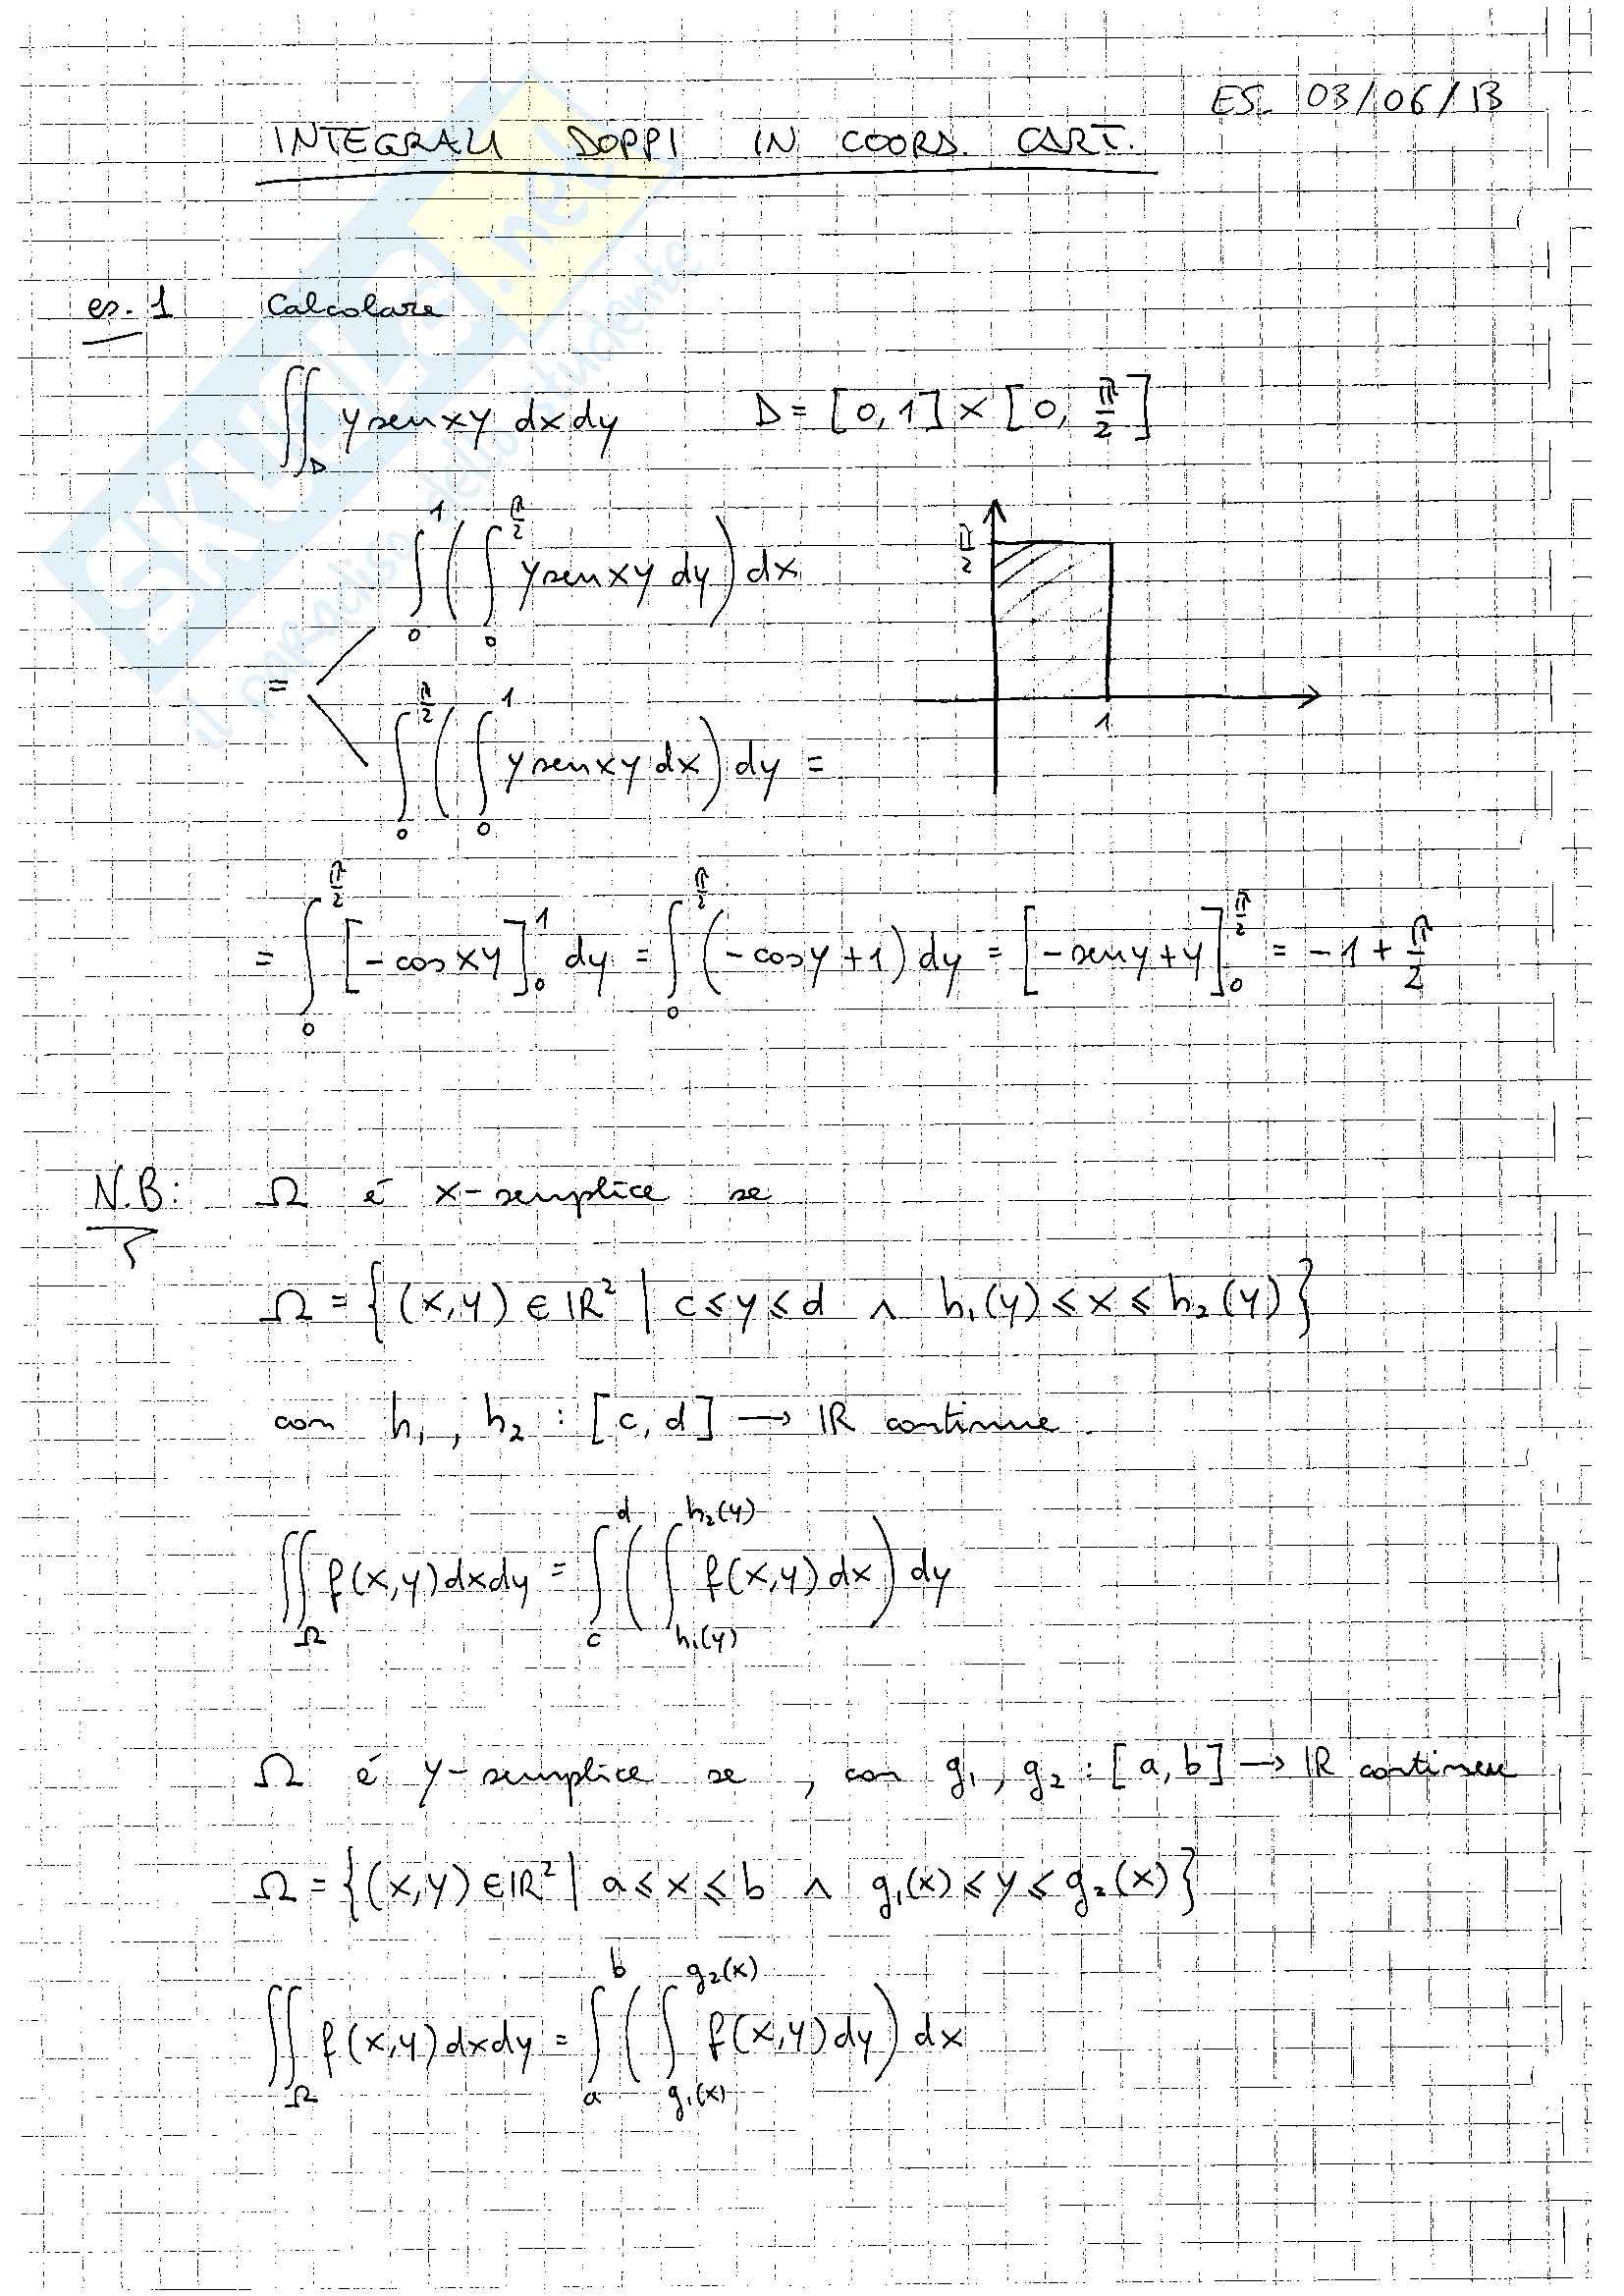 ES. 03/06/13
INTEGRALI DOPPI IN COORD. CART.
es. 1 Calcolare
∬_D y sen xy dx dy D = [0,1] × [0, π/2]
∫_0^1 ( ∫_0^{π/2} y sen xy dy ) dx
=
∫_0^{π/2} ( ∫_0^1 y sen xy dx ) dy =
π/2
1
= ∫_0^{π/2} [- cos xy]_0^1 dy = ∫_0^{π/2} (- cos y + 1) dy = [- sen y + y]_0^{π/2} = -1 + π/2
N.B: Ω é x-semplice se
Ω = {(x,y) ∈ ℝ² | c ≤ y ≤ d ∧ h₁(y) ≤ x ≤ h₂(y)}
con h₁, h₂ : [c,d] → ℝ continue.
∬_Ω f(x,y) dx dy = ∫_c^d ( ∫_{h₁(y)}^{h₂(y)} f(x,y) dx ) dy
Ω é y-semplice se, con g₁, g₂ : [a,b] → ℝ continue
Ω = {(x,y) ∈ ℝ² | a ≤ x ≤ b ∧ g₁(x) ≤ y ≤ g₂(x)}
∬_Ω f(x,y) dx dy = ∫_a^b ( ∫_{g₁(x)}^{g₂(x)} f(x,y) dy ) dx
SKUOLA.net
il paradiso dello studente